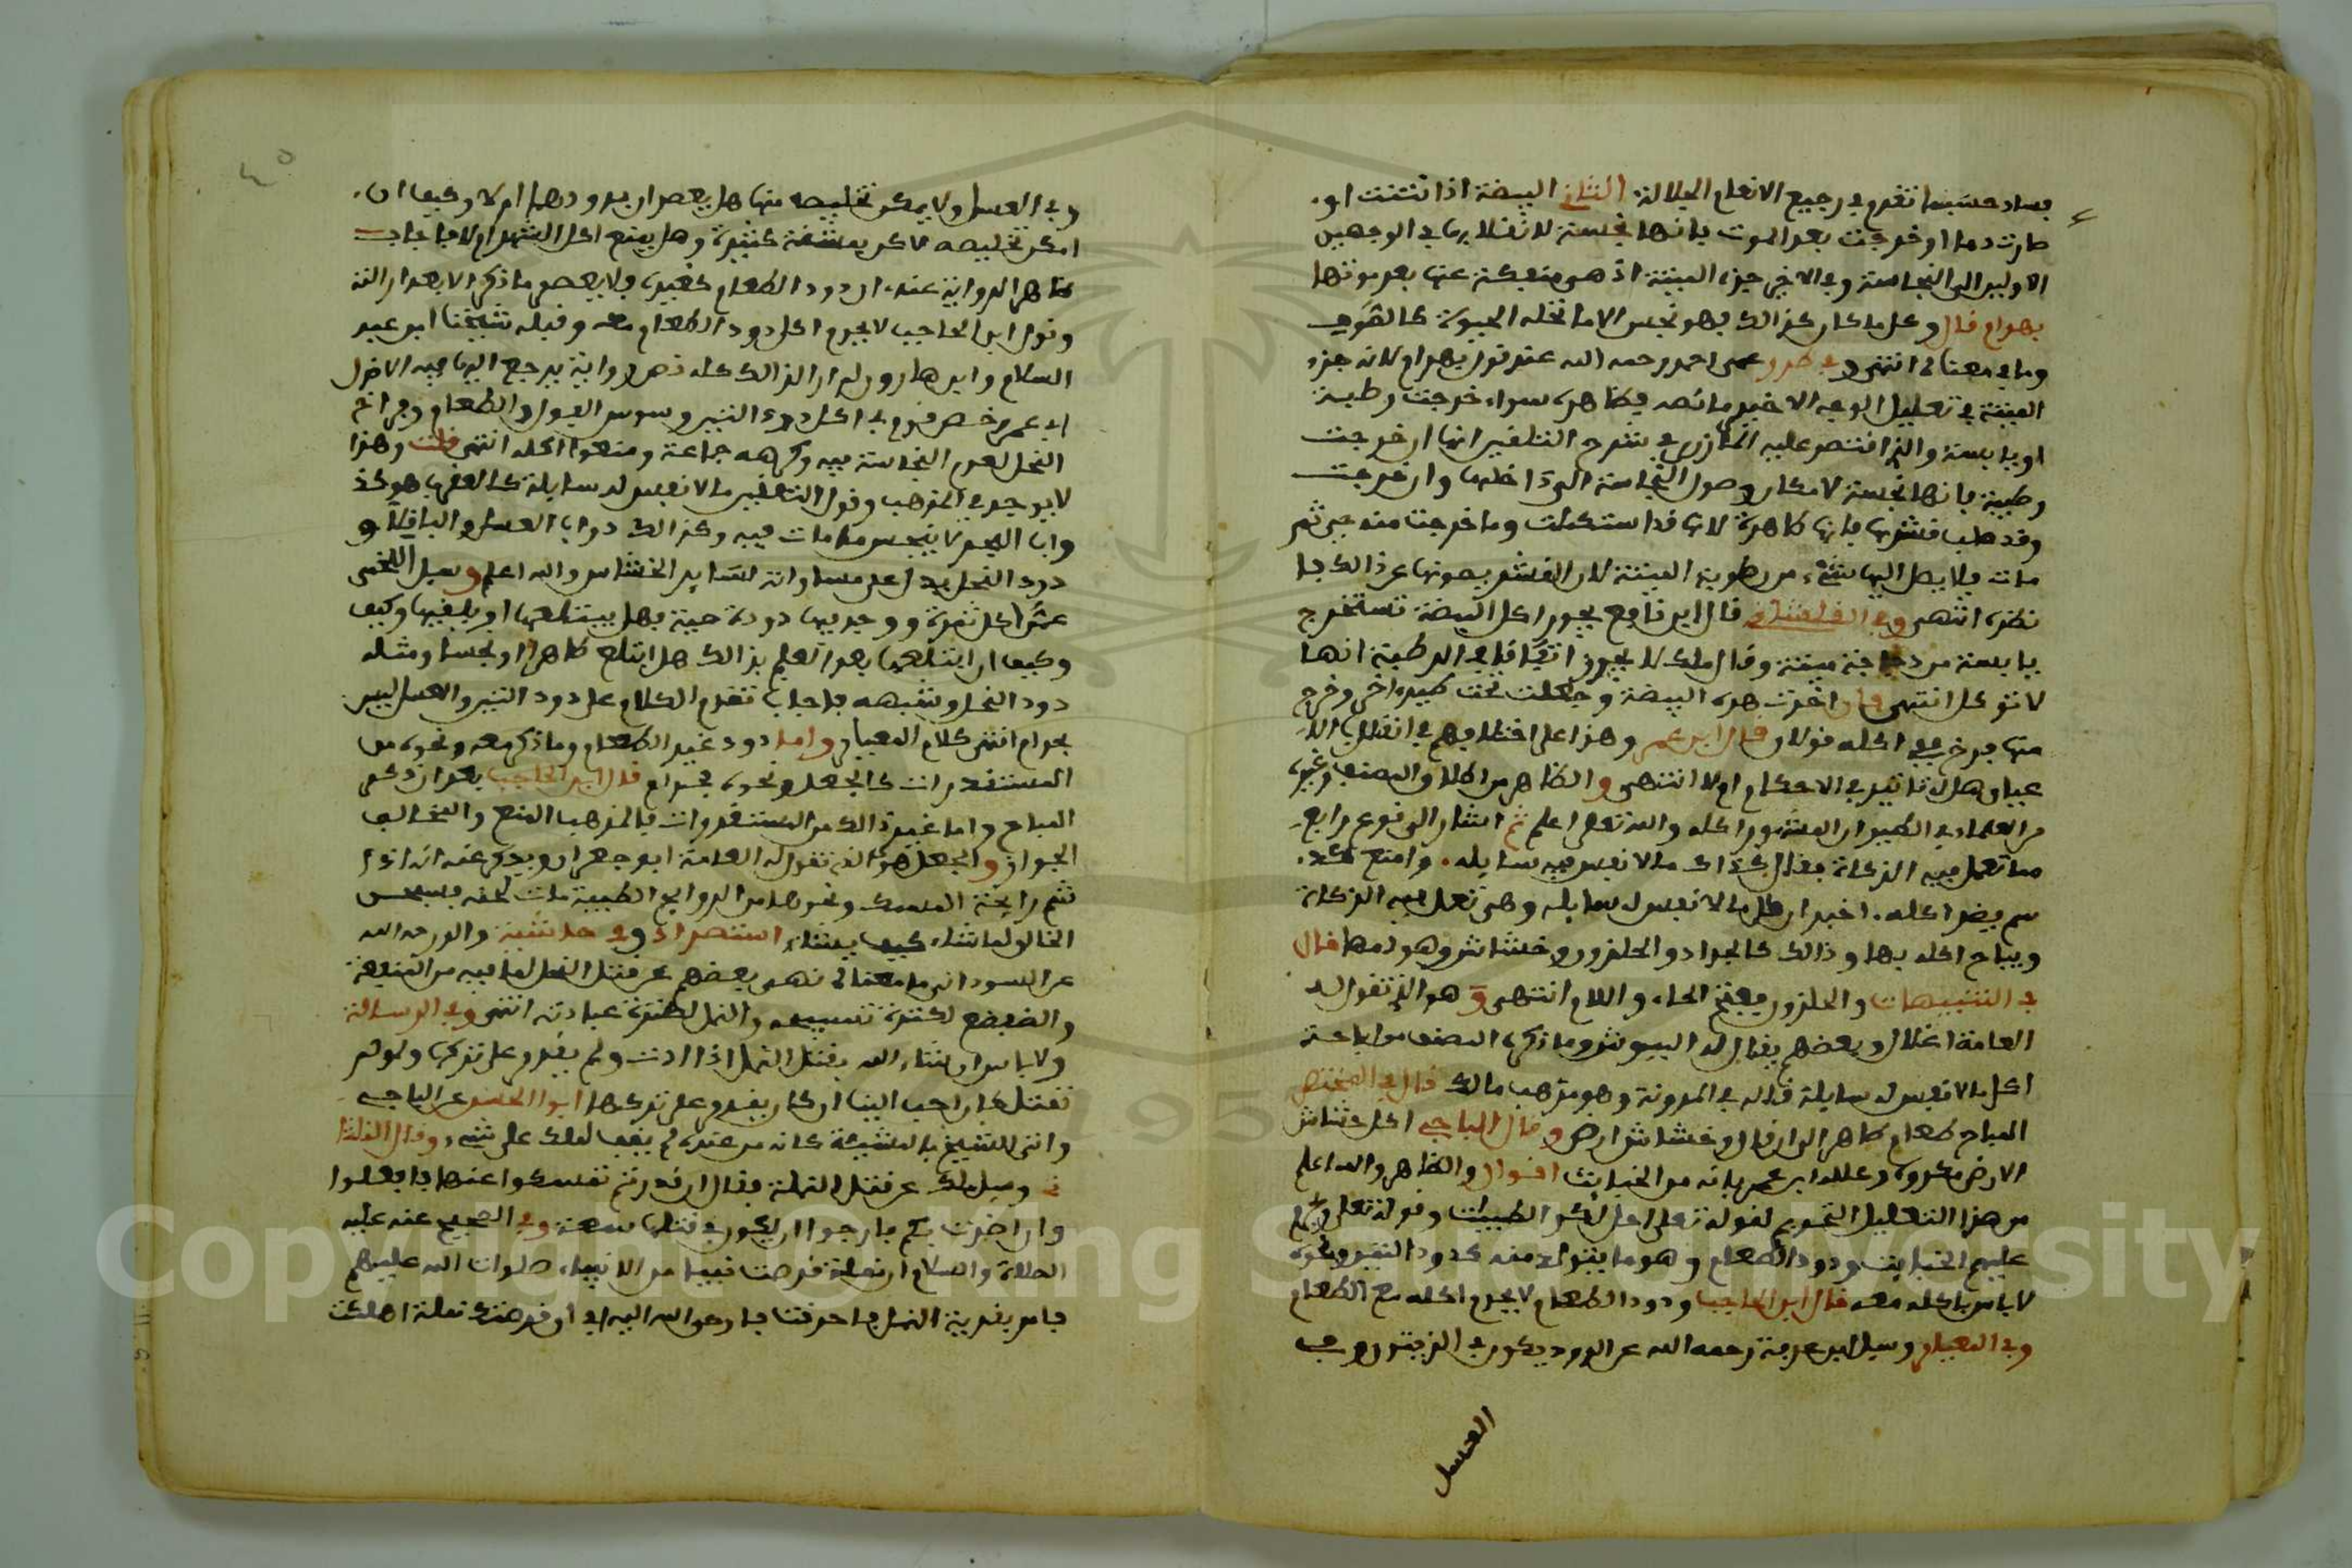 فساد حسبما تقدم في رجيع الانعام الجلالة الثاني البيضة اذا نتنت او
صارت دما او خرجت بعد الموت فانها نجسة لانتقالها في الوجهين
الاولين الى النجاسة وفي الاخير جزء الميتة اذ هي منفكة عنها بعد موتها
بهرام قال وكل ما كان كذالك فهو نجس الا ما تحله الحيوة كالقوي
وما في معناه انتهى وفي طرر عمي احمد رحمه الله عند قول بهرام لانه جزء
الميتة في تعليل الوجه الاخير ما نصه فظاهره سواء خرجت رطبة
او يابسة والذي اقتصر عليه المازري في شرح التلقين انها ان خرجت
رطبة فانها نجسة لامكان وصول النجاسة الى داخلها وان خرجت
وقد صلب قشرها فانها طاهرة لانها قد استكملت وما خرجت منه حين
مات فلا يصل اليها شيء من رطوبة الميتة لان القشر يصونها عن ذالك
نظره انتهى وفي القلشاني قال ابن نافع يجوز اكل البيضة تستخرج
يابسة من دجاجة ميتة وقال ملك لا يجوز اتفاقا في الرطبة انها
لا توكل انتهى فان اخذت هذه البيضة وجعلت تحت كبيرة اخرى وخرج
منها فرخ ففي اكله قولان قال ابن عمر وهذا على اختلافهم في انقلاب الا
عيان هل له تاثير في الاحكام ام لا انتهى والظاهر من كلام المصنف وغيره
من العلماء في الطير ان المشهور اكله والله تعلى اعلم ثم اشار الى نوع رابع
مما تعمل فيه الزكاة فقال كذاك ما لا نفس فيه سايله وامنع لكل
سم يضر اكله اخبر ان كل ما لا نفس له سايلة وهي تعمل فيه الزكاة
ويباح اكله بها وذالك كالجراد والحلزون وخشاش وهوامها قال
في التنبيهات والحلزون بفتح الحاء واللام انتهى وهو الذي تقول له
العامة اغلال وبعضهم يقال له الببوش وما ذكره المصنف من اباحة
اكل ما لا نفس له سايلة قاله في المدونة وهو مذهب مالك قال في المختصر
المباح طعام طاهر الى ان قال وخشاش ارض وقال الباجي اكل خشاش
الارض مكروه وعلله ابن عمر بانه من الخبايث اقول والظاهر والله اعلم
من هذا التعليل التحريم لقوله تعلى احل لكم الطيبات وقوله تعلى ويحرم
عليهم الخبايث ودود الطعام وهو ما يتولد منه كدود التمر ونحوه
لا باس باكله معه قال ابن الحاجب ودود الطعام لا يحرم اكله مع الطعام
وفي المعيار وسيل ابن عرفة رحمه الله عن الدود يكون في الزيتون وفي
العسل
وفي العسل ولا يمكن تخليصه منها هل يعصر ان بدودهما ام لا وكيف ان
امكن تخليصه لاكن بمشقة كثيرة وهل يمنع اكل الشهد ام لا فاجاب
ظاهر الرواية عنده ان دود الطعام كغيره ولا يعصر ما ذكر الا بعد ازالته
وقول ابن الحاجب لا يحرم اكل دود الطعام معه وقبله شيخنا ابن عبد
السلام وابن هارون لم ار الذالك كله نص رواية يرجع اليها فيه الا قول
ابي عمر رخص قوم في اكل دود التين وسوس الفول والطعام وفراخ
النحل لعدم النجاسة فيه وكرهه جماعة ومنعوا اكله انتهى قلت وهذا
لا يوجد في المذهب وقول التلقين ما لا نفس له سايلة كالعقرب هو كد
واب البحر لا ينجس ما مات فيه وكذالك دواب العسل والباقلاء و
دود النخل يدل على مساواته لساير الخشاش والله اعلم وسيل اللخمي
عمن اكل ثمرة ووجد فيها دودة حية فهل يبتلعها او يلفيها وكيف
وكيف ان ابتلعها بعد العلم بذالك هل ابتلع طاهرا او نجسا ومثله
دود النخل وشبهه فاجاب تقدم الكلام على دود التين والعسل ليس
بحرام انتهى كلام المعيار واما دود غير الطعام وما ذكر معه ونحوه من
المستقذرات كالجعل ونحوه فحرام قال ابن الحاجب بعد ان ذكر
المباح واما غير ذالك من المستقذرات فالمذهب المنع والمخالف
الجواز والجعل هو الذي تقول له العامة ابو جعران ويذكر عنه انه اذا
شم رايحة المسك ونحوها من الروايح الطيبة مات لحينه فسبحن
الخالق لما شاء كيف يشاء استطراد وفي حاشية والوز رحمه الله
عن السوداني ما معناه نهى بعضهم عن قتل النحل لما فيه من المنفعة
والضفضع لكثرة تسبيحه والنمل لكثرة عبادته انتهى وفي الرسالة
ولا باس ان شاء الله بقتل النمل اذا اذت ولم يقدر على تركها ولو لم
تقتل كان احب الينا ان كان يقدر على تركها ابو الحسن عن الباجي
واتى الشيخ بالمشيئة كانه من عنده لم يقف لملك على شيء وقال القلشا
ني وسيل ملك عن قتل النملة فقال ان قدرتم تمسكوا عنها فافعلوا
وان اضرت بكم فارجوا ان يكون في قتلها سعة وفي الصحيح عنه عليه
الصلاة والسلام ان نملة قرصت نبيا من الانبياء صلوات الله عليهم
فامر بقرية النمل فاحرقت فاوحى الله اليه افي ان قرصتك نملة اهلكت